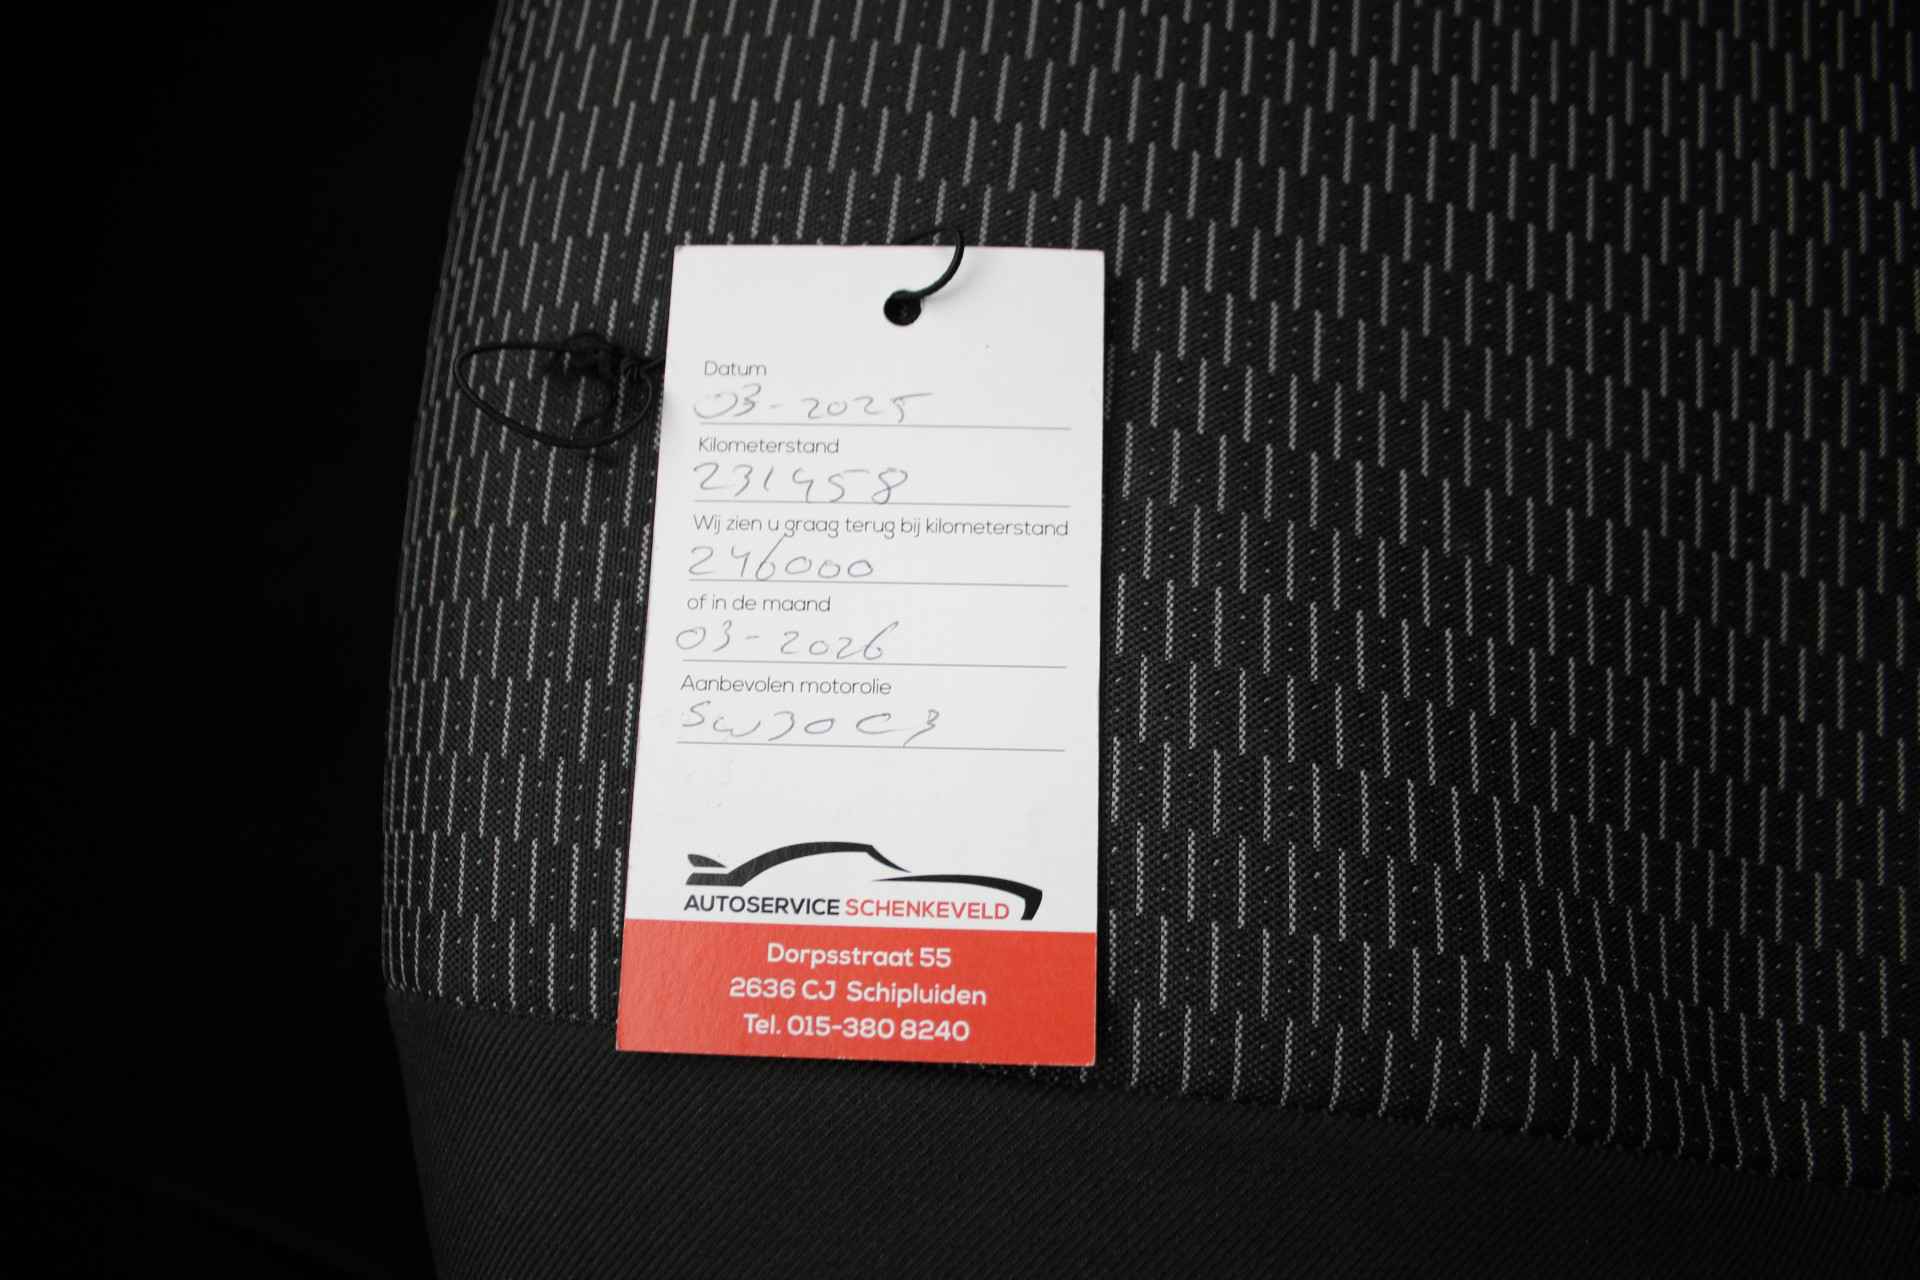 Datum
03-2025
Kilometerstand
231458
Wij zien u graag terug bij kilometerstand
246000
of in de maand
03-2026
Aanbevolen motorolie
5W30 C3
AUTOSERVICE SCHENKEVELD
Dorpsstraat 55
2636 CJ Schipluiden
Tel. 015-380 8240